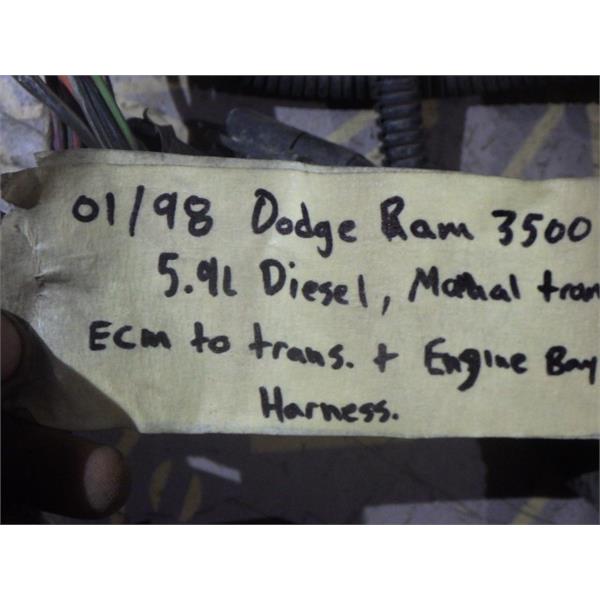 01/98 Dodge Ram 3500
5.9L Diesel, Manual tran
ECM to trans. + Engine Bay
Harness.